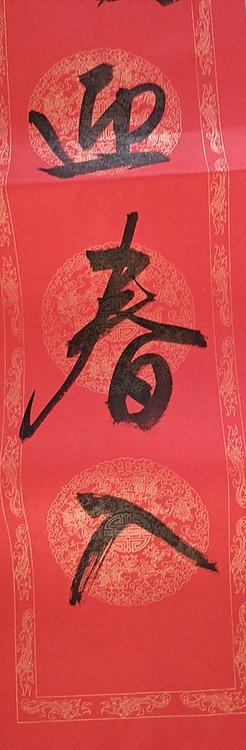 迎春入